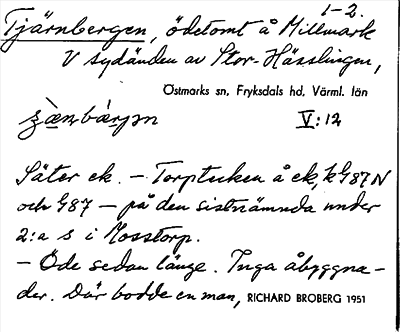 1-2.
Tjärnbergen, ödetomt å Millmark
V sydänden av Stor-Hässlingen,
Östmarks sn, Fryksdals hd, Värml. län
V:12
Säter ek. – Torptecken å ek, k G87 N
och G87 – på den sistnämnda under
2:a s i Mosstorp.
– Öde sedan länge. Inga åbyggna-
der. Där bodde en man, RICHARD BROBERG 1951